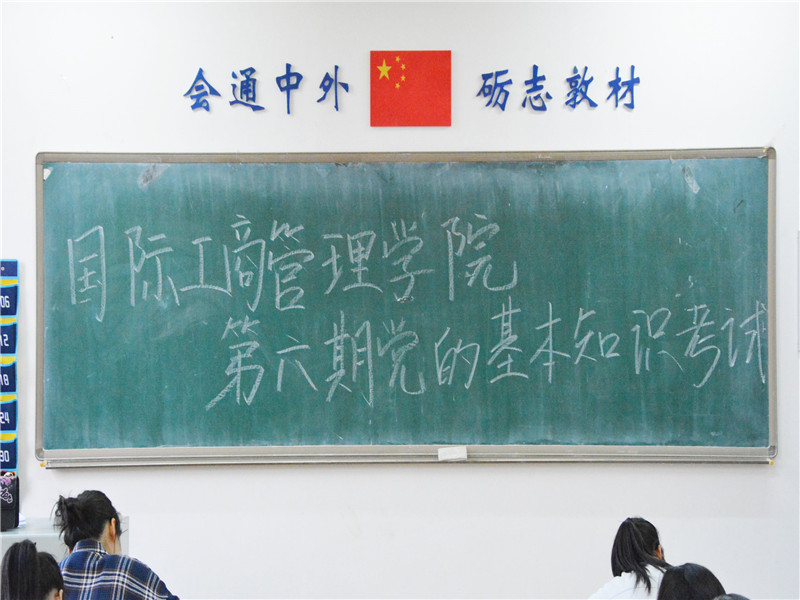 会通中外 砺志敦材
国际工商管理学院
第六期党的基本知识考试
06
12
18
24
30